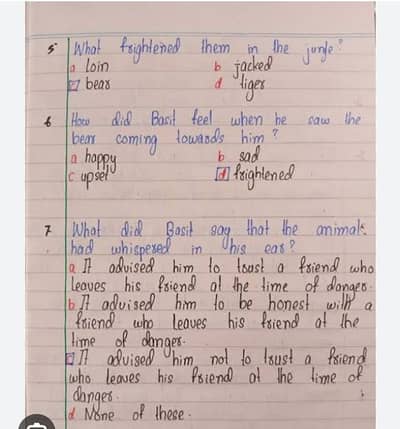 5 What frightened them in the jungle?
a loin b jacked
c bear d tiger
6 How did Basit feel when he saw the
bear coming towards him?
a happy b sad
c upset d frightened
7 What did Basit say that the animal
had whispered in his ear?
a It advised him to trust a friend who
leaves his friend at the time of danger.
b It advised him to be honest with a
friend who leaves his friend at the
time of danger.
c It advised him not to trust a friend
who leaves his friend at the time of
danger.
d None of these.